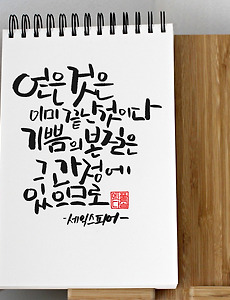 얻은 것은
이미 끝난 것이다
기쁨의 본질은
그 과정에
있으므로
-세익스피어-